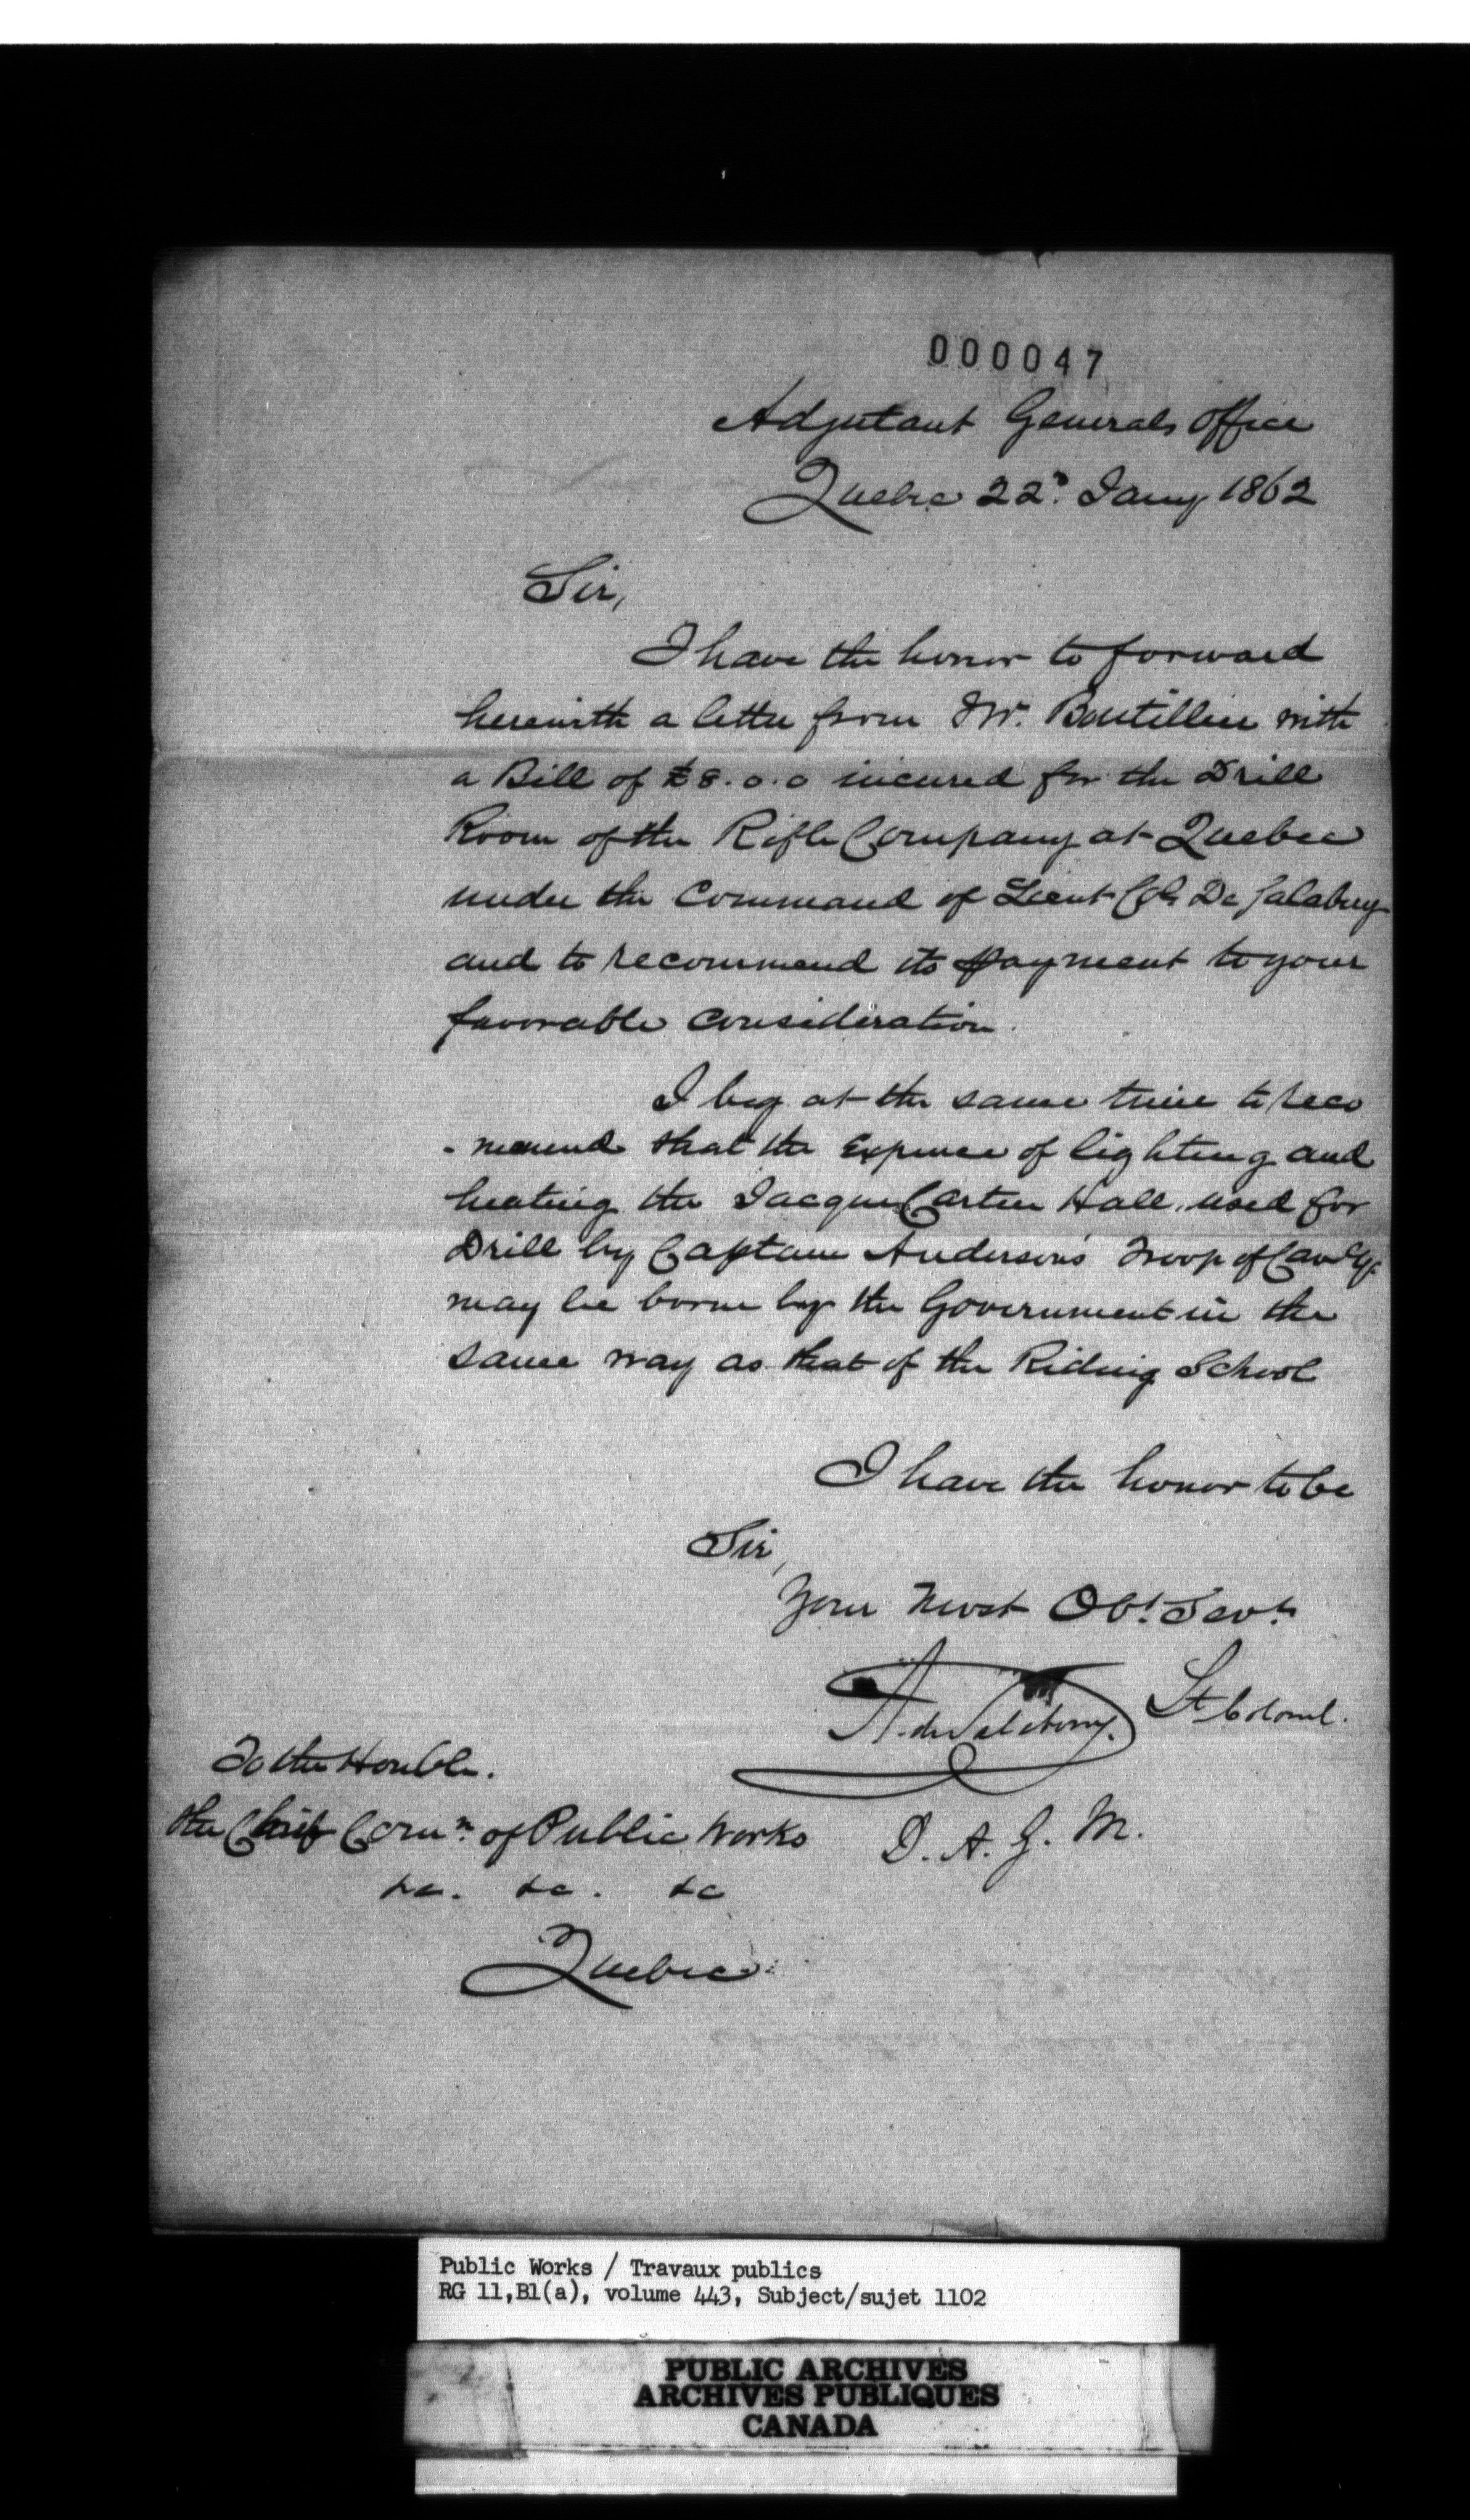 000047
Adjutant Generals Office
Quebec 22d. Jany 1862
Sir,
I have the honor to forward
herewith a letter from Mr. Boutillier with
a Bill of £8.0.0 incured for the Drill
Room of the Rifle Company at Quebec
under the Command of Lieut Col. De Salabery
and to recommend its payment to your
favorable consideration.
I beg at the same time to reco
-mmend that the Expense of lighting and
heating the Jacques Cartier Hall, used for
Drill by Captain Anderson's Troop of Cavly.
may be borne by the Government in the
same way as that of the Riding School
I have the honor to be
Sir,
Your Most Obt. Servt.
A. de Salaberry. Lt Colonel.
To the Honble.
the Chief Comn. of Public Works
D. A. G. M.
&c. &c. &c
Quebec.
Public Works / Travaux publics
RG 11,B1(a), volume 443, Subject/sujet 1102
PUBLIC ARCHIVES
ARCHIVES PUBLIQUES
CANADA